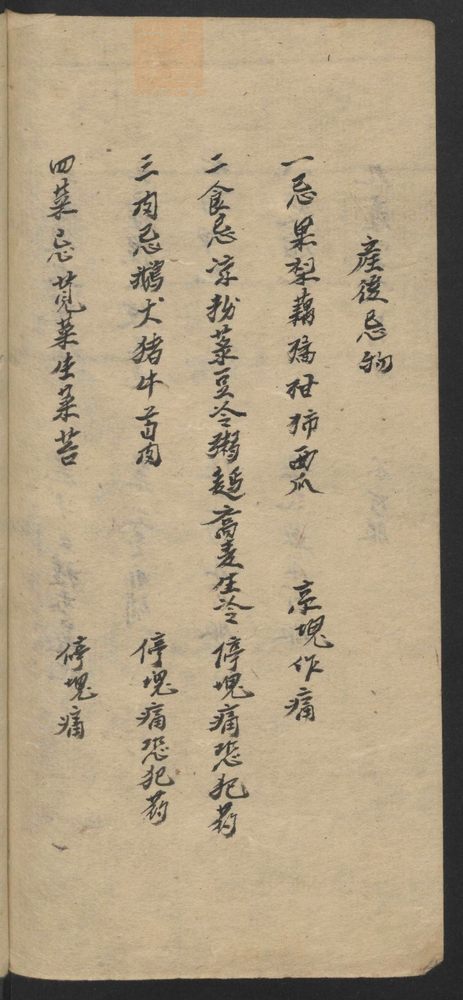 產後忌物
一忌果梨藕橘柑柿西瓜 停塊作痛
二食忌凉粉菉豆冷粥 蕎麦生冷 停塊痛恐犯药
三肉忌鵝犬猪牛首肉 停塊痛恐犯药
四菜忌莧菜生菜苔 停塊痛